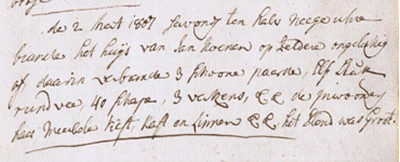 de 2 Meert 1807 savons ten half neege uhre
brande het huijs van Jan Koenen op Zelder ongelukig
af daarin verbrande 3 schoone paerde, Elf stuk
rundvee, 40 schape, 3 verkens, &c de
haer Meubele kist, kast en Linnen &c, het Elend was Groot.